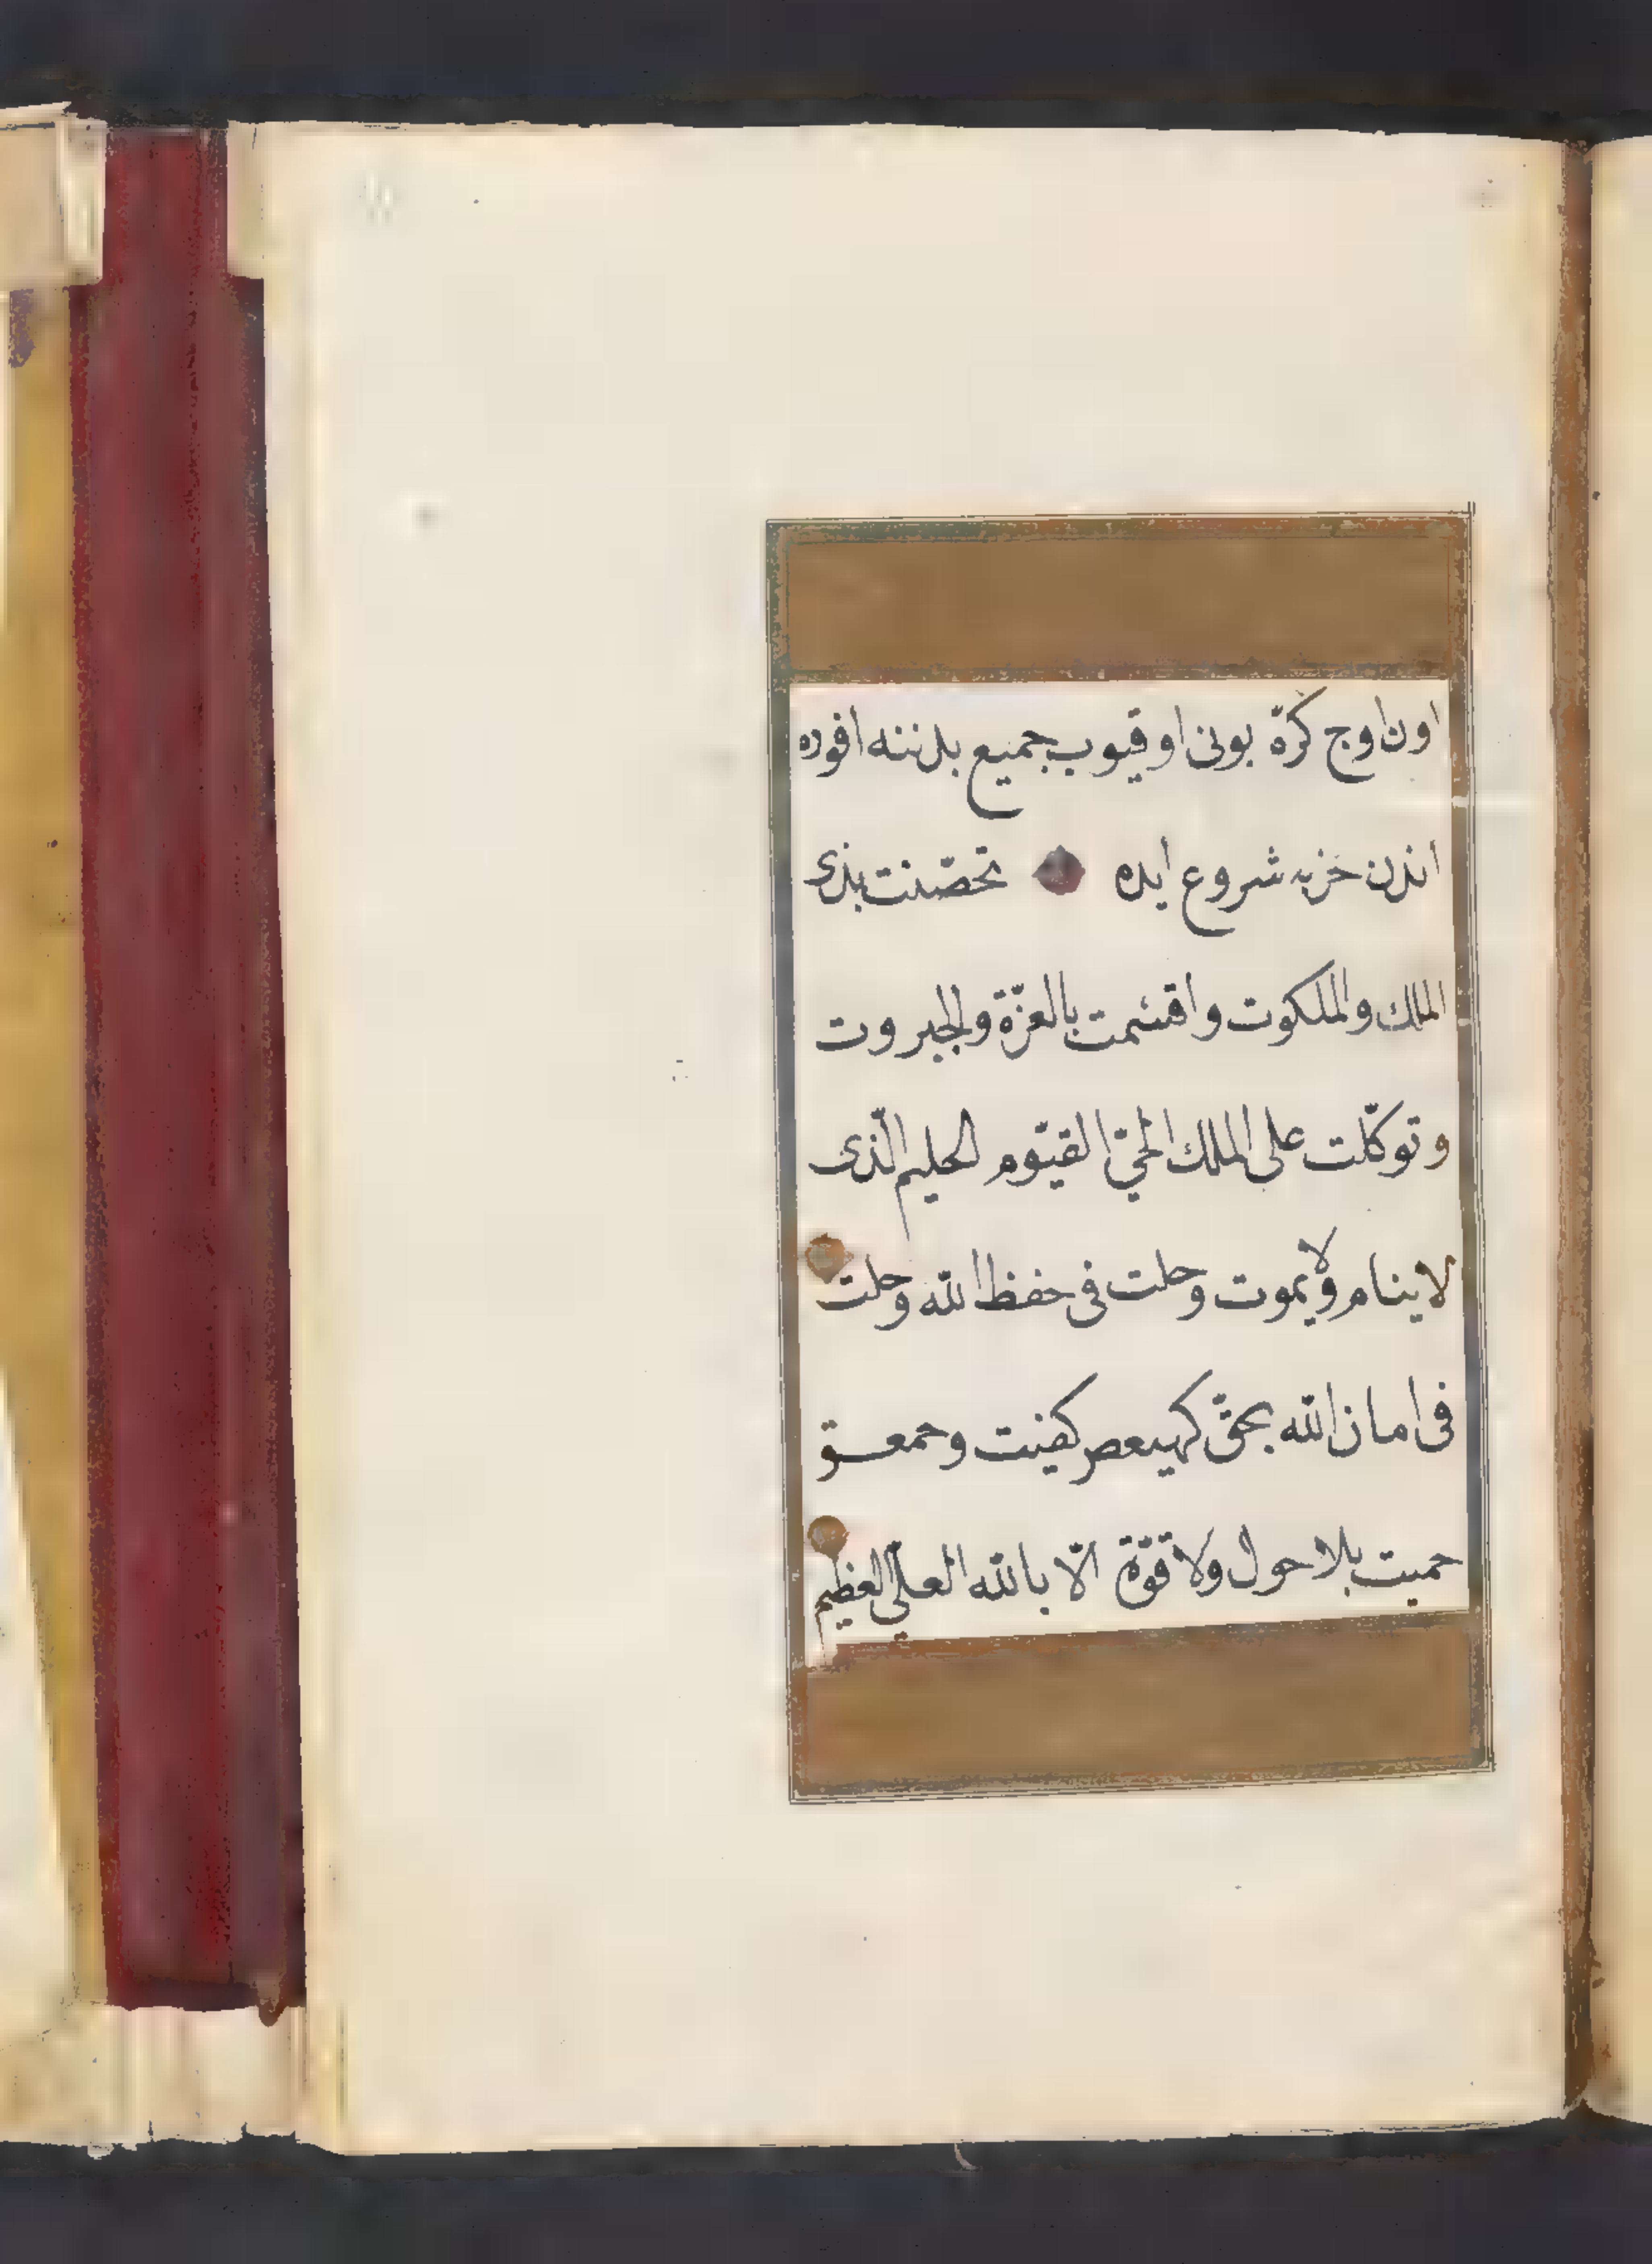 اون اوج كرّه بونى اوقيوب جميع بدننه افوره
اندن حزبه شروع ايده تحصّنت بذى
الملك والملكوت واقسمت بالعزّة والجبروت
وتوكّلت على الملك الحيّ القيّوم الحليم الّذى
لا ينام ولا يموت وحلت فى حفظ الله وحلت
فى امان الله بحقّ كهيعص كفيت وحمعسق
حميت بلا حول ولا قوّة الّا بالله العلىّ العظيم